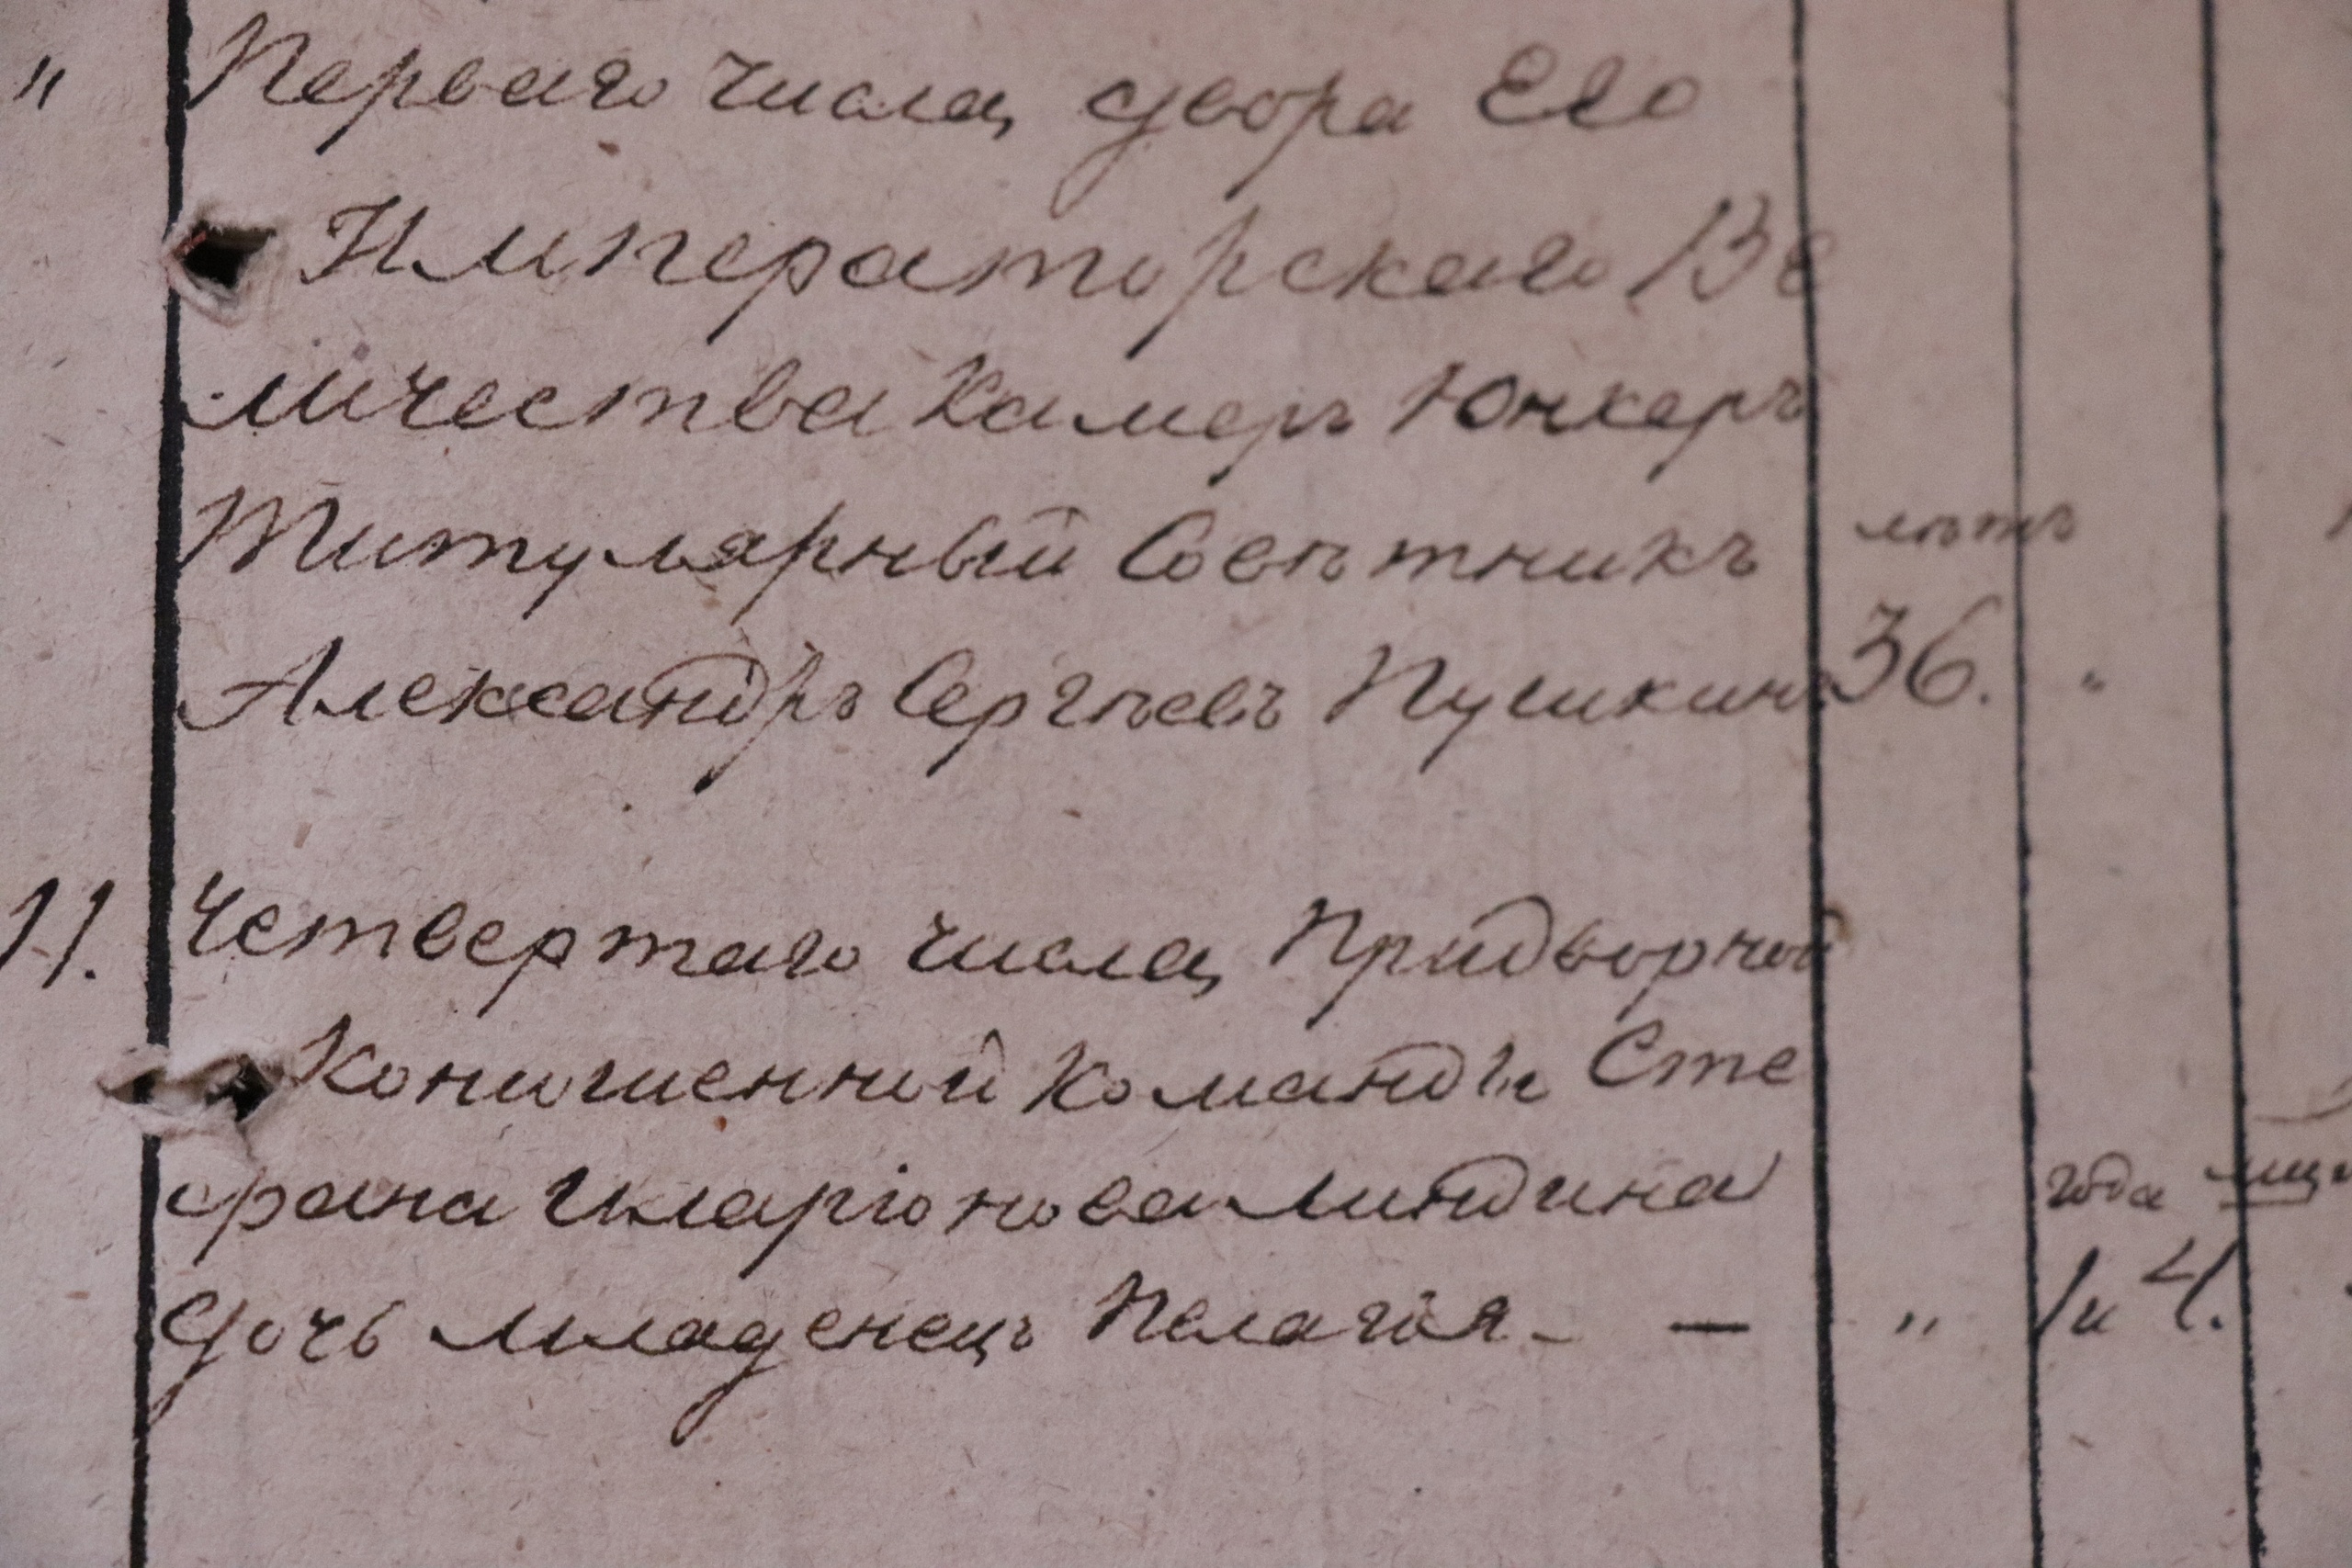 " Перваго числа, двора Его
Императорскаго Ве
личества Камеръ Юнкеръ
Титулярный Совѣтникъ лѣтъ
Александръ Сергѣевъ Пушкинъ 36. "
11. Четвертаго числа, Придворной
Конюшенной Команды Сте
фана Иларіонова Линдина года мц
дочь младенецъ Пелагія. — " 1 и 4.